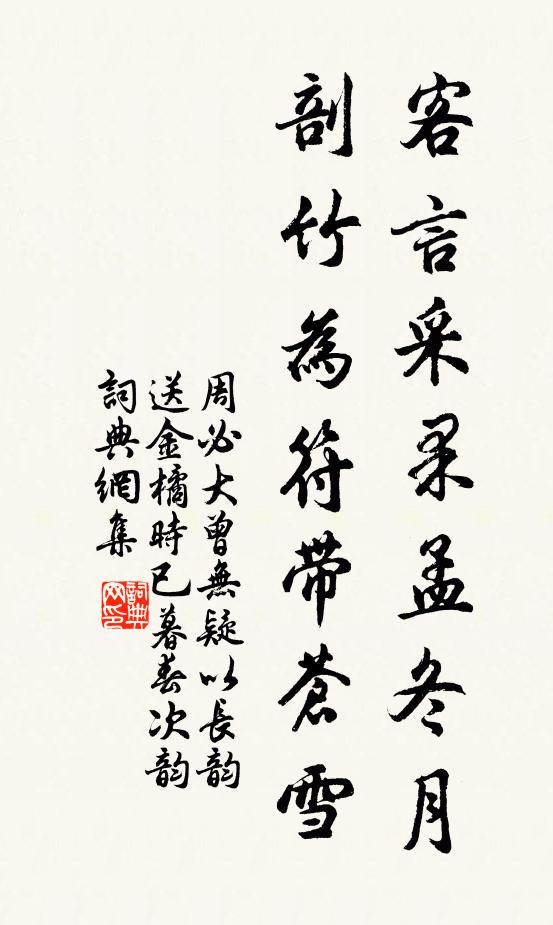 客言采果孟冬月
剖竹為符帶蒼雪
周必大曾無疑以長韵
送金橘時已暮春次韵
詞典網集
詞典网印